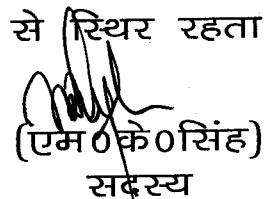 से स्थिर रहता
(एम0के0सिंह)
सदस्य